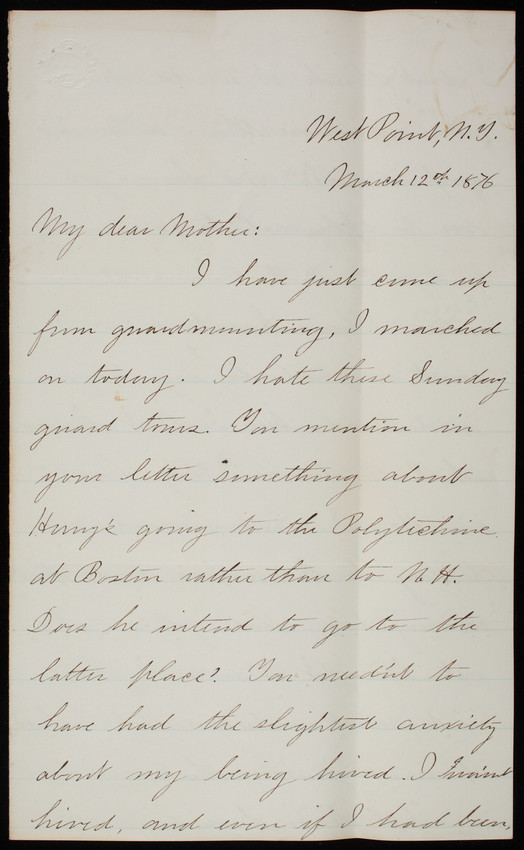 West Point, N.Y.
March 12th 1876
My dear Mother:
I have just come up
from guardmounting, I marched
on today. I hate these Sunday
guard tours. You mention in
your letter something about
Henry's going to the Polytechnic
at Boston rather than to N.H.
Does he intend to go to the
latter place? You need'nt to
have had the slightest anxiety
about my being hived. I was'nt
hived, and even if I had been,